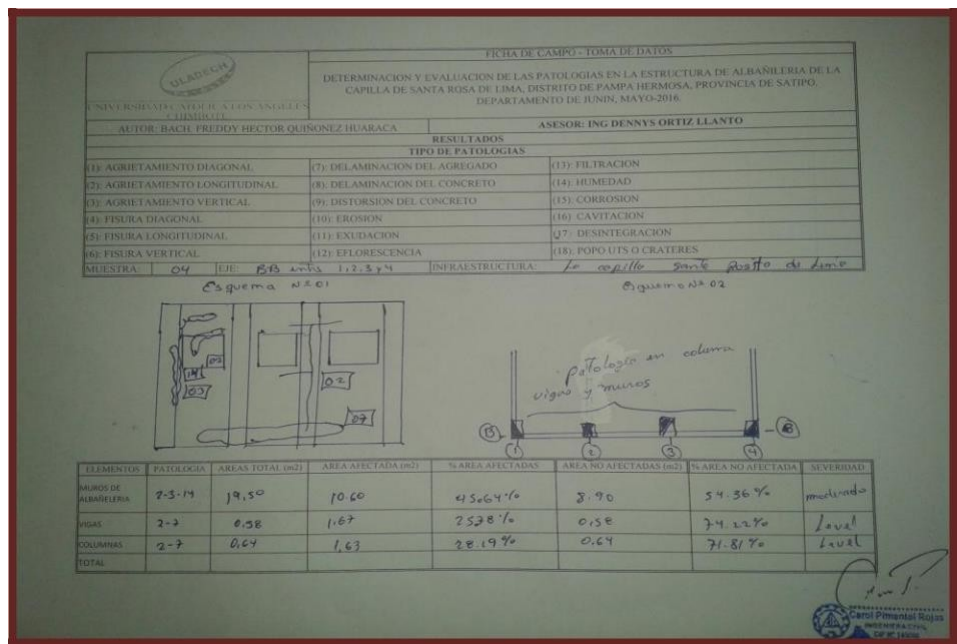 FICHA DE CAMPO - TOMA DE DATOS
ULADECH
DETERMINACION Y EVALUACION DE LAS PATOLOGIAS EN LA ESTRUCTURA DE ALBAÑILERIA DE LA
CAPILLA DE SANTA ROSA DE LIMA, DISTRITO DE PAMPA HERMOSA, PROVINCIA DE SATIPO,
DEPARTAMENTO DE JUNIN, MAYO-2016.
UNIVERSIDAD CATOLICA LOS ANGELES
CHIMBOTE
AUTOR: BACH. FREDDY HECTOR QUIÑONEZ HUARACA ASESOR: ING DENNYS ORTIZ LLANTO
RESULTADOS
TIPO DE PATOLOGIAS
(1): AGRIETAMIENTO DIAGONAL (7): DELAMINACION DEL AGREGADO (13): FILTRACION
(2): AGRIETAMIENTO LONGITUDINAL (8): DELAMINACION DEL CONCRETO (14): HUMEDAD
(3): AGRIETAMIENTO VERTICAL (9): DISTORSION DEL CONCRETO (15): CORROSION
(4): FISURA DIAGONAL (10): EROSION (16) CAVITACION
(5): FISURA LONGITUDINAL (11): EXUDACION (17): DESINTEGRACION
(6): FISURA VERTICAL (12): EFLORESCENCIA (18): POPO UTS O CRATERES
MUESTRA: 04 EJE: BB entre 1,2,3 y 4 INFRAESTRUCTURA: La capilla Santa de Lima
Esquema Nº 01 Esquema Nº 02
02
14
03
02
07
patología en columna
vigas y muros
B B
1 2 3 4
ELEMENTOS PATOLOGIA AREAS TOTAL (m2) AREA AFECTADA (m2) % AREA AFECTADAS AREA NO AFECTADAS (m2) % AREA NO AFECTADA SEVERIDAD
MUROS DE
ALBAÑELERIA 2-3-14 19.50 10.60 45.64% 8.90 54.36% moderado
VIGAS 2-7 0.58 1.67 2578% 0.58 74.22% Level
COLUMNAS 2-7 0.64 1.63 28.19% 0.64 71.81% Level
TOTAL
Carol Pimentel Rojas
INGENIERA CIVIL